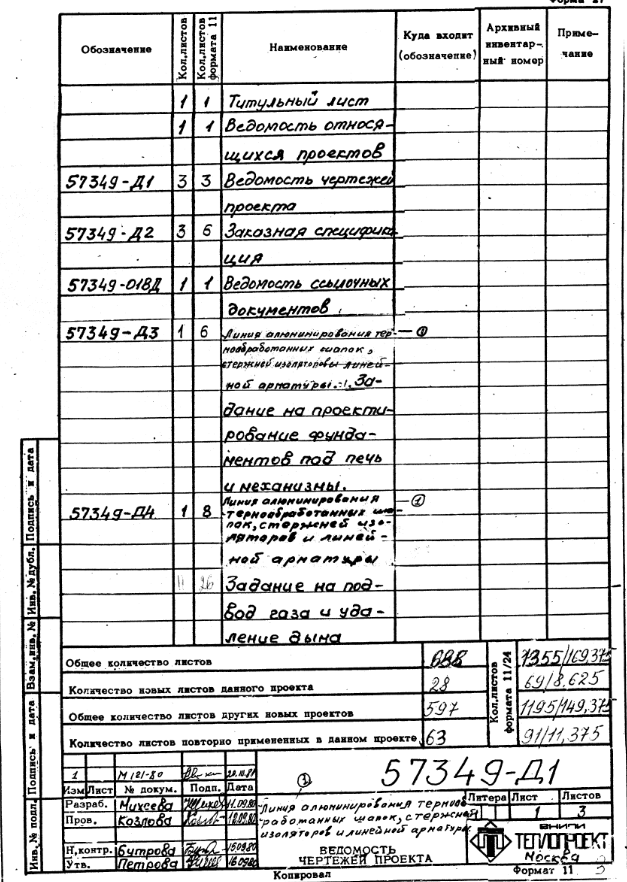 Форма 27
Обозначение
Кол.листов
Кол.листов формата 11
Наименование
Куда входит (обозначение)
Архивный инвентарный номер
Примечание
1 1 Титульный лист
1 1 Ведомость относя-
щихся проектов
57349-Д1 3 3 Ведомость чертежей
проекта
57349-Д2 3 6 Заказная специфика-
ция
57349-018Д 1 1 Ведомость ссылочных
документов
57349-Д3 1 6 Линия алюминирования тер- — ①
мообработанных шапок,
стержней изоляторов и линей-
ной арматуры. За-
дание на проекти-
рование фунда-
ментов под печь
и механизмы.
57349-Д4 1 8 Линия алюминирования — ①
термообработанных ша-
пок, стержней изо-
ляторов и линей-
ной арматуры
11 26 Задание на под-
вод газа и уда-
ление дыма
Общее количество листов 688
Количество новых листов данного проекта 28
Общее количество листов других новых проектов 597
Количество листов повторно примененных в данном проекте 63
Кол.листов формата 11/24
1355/169,375
69/8,625
1195/149,375
91/11,375
1 М121-80
Изм Лист № докум. Подп. Дата
Разраб. Михеева 11.09.80
Пров. Козлова 12.09.80
Н.контр. Бутрова 15.09.80
Утв. Петрова 16.09.80
57349-Д1
①
Линия алюминирования термооб-
работанных шапок, стержней
изоляторов и линейной арматуры.
ВЕДОМОСТЬ
ЧЕРТЕЖЕЙ ПРОЕКТА
Литера Лист Листов
1 3
ВНИПИ
ТЕПЛОПРОЕКТ
Москва
Копировал
Формат 11
3
Инв. № подл. Подпись и дата Взам. инв. № Инв. № дубл. Подпись и дата